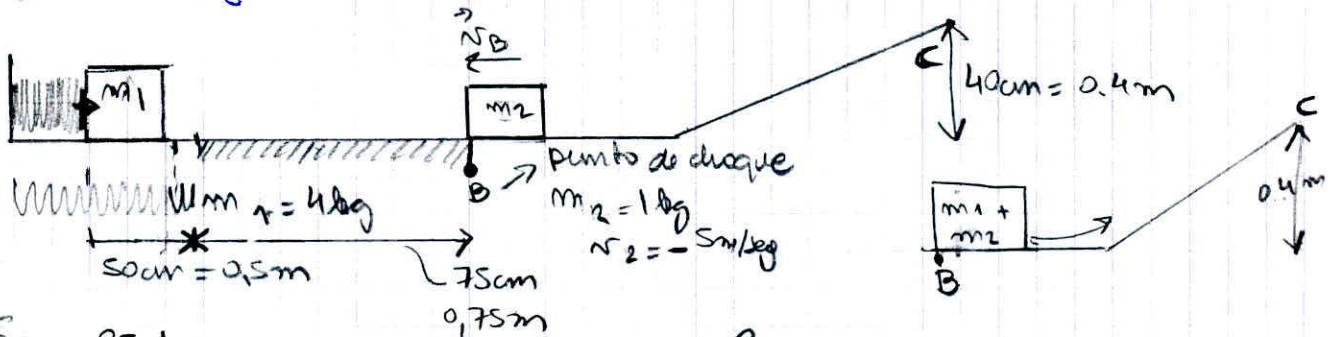 v⃗B
m1
m2
C
40cm = 0.4m
B
punto de choque
m1 = 4kg
m2 = 1kg
v2 = -5m/seg
50cm = 0,5m
75cm
0,75m
m1 +
m2
B
C
0.4m